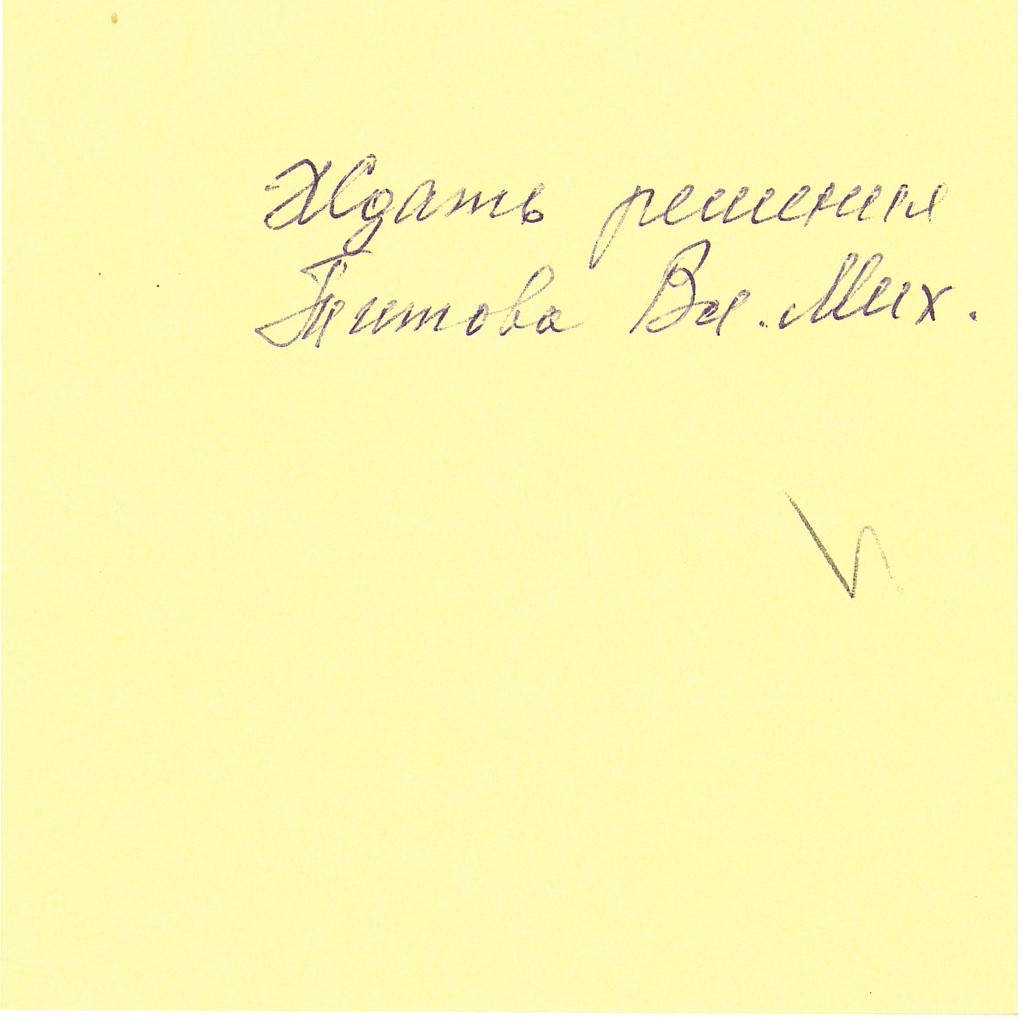 Ждать решения
Титова Вл. Мих.